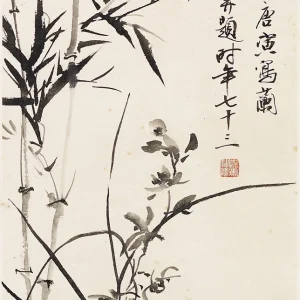 唐寅寫蘭
并題時年七十三